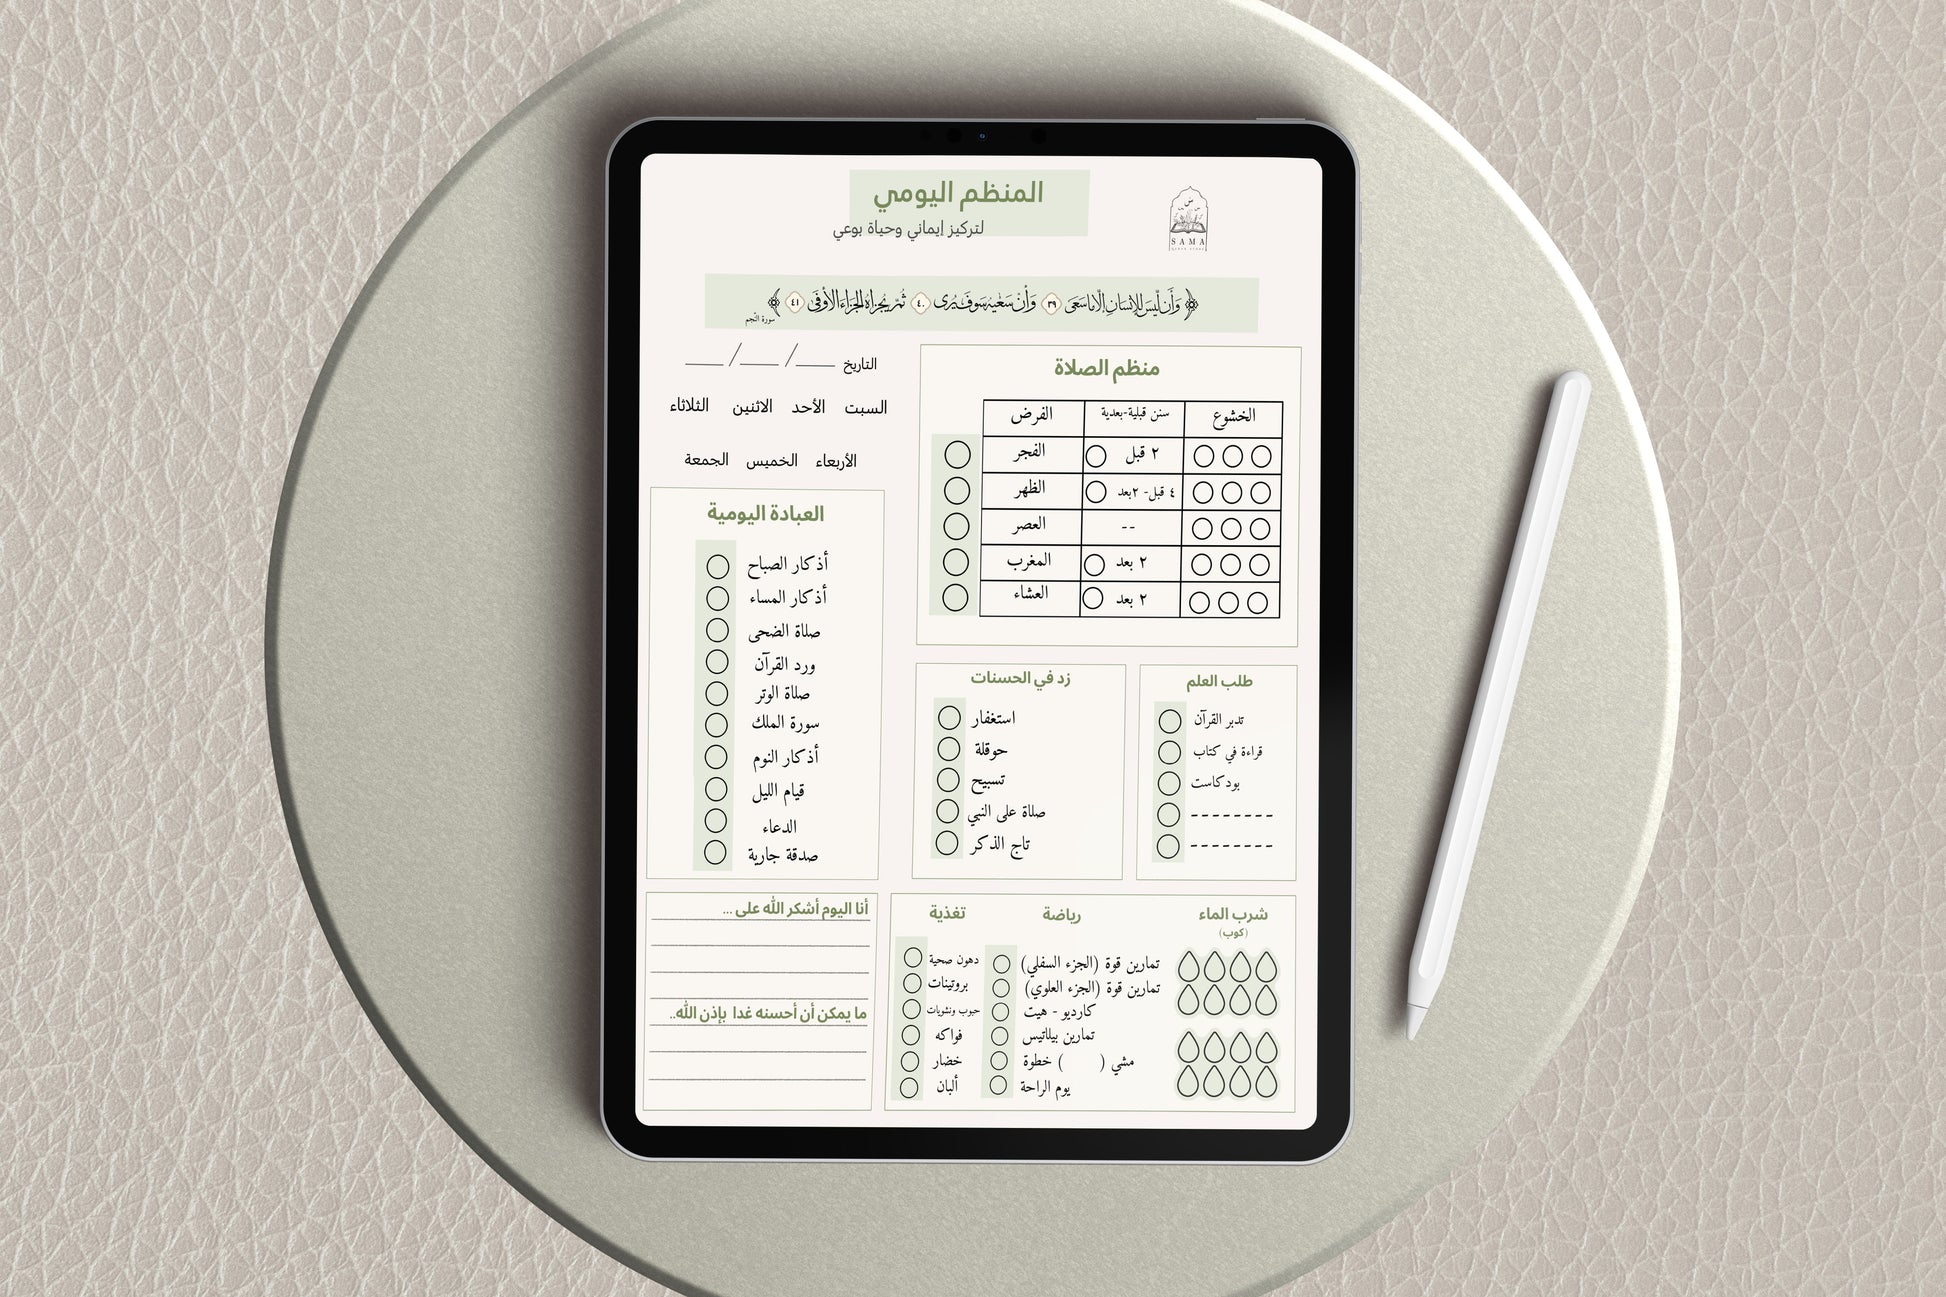 المنظم اليومي
لتركيز إيماني وحياة بوعي
SAMA
﴿ وَأَن لَّيْسَ لِلْإِنسَانِ إِلَّا مَا سَعَىٰ ٣٩ وَأَنَّ سَعْيَهُ سَوْفَ يُرَىٰ ٤٠ ثُمَّ يُجْزَاهُ الْجَزَاءَ الْأَوْفَىٰ ٤١ ﴾
سورة النّجم
منظم الصلاة
الخشوع سنن قبلية-بعدية الفرض
٢ قبل الفجر
٤ قبل- ٢بعد الظهر
-- العصر
٢ بعد المغرب
٢ بعد العشاء
التاريخ ___ / ___ / ___
السبت الأحد الاثنين الثلاثاء
الأربعاء الخميس الجمعة
العبادة اليومية
أذكار الصباح
أذكار المساء
صلاة الضحى
ورد القرآن
صلاة الوتر
سورة الملك
أذكار النوم
قيام الليل
الدعاء
صدقة جارية
طلب العلم
تدبر القرآن
قراءة في كتاب
بودكاست
--------
--------
زد في الحسنات
استغفار
حوقلة
تسبيح
صلاة على النبي
تاج الذكر
شرب الماء
(كوب)
رياضة
تمارين قوة (الجزء السفلي)
تمارين قوة (الجزء العلوي)
كارديو - هيت
تمارين بيلاتيس
مشي ( ) خطوة
يوم الراحة
تغذية
دهون صحية
بروتينات
حبوب ونشويات
فواكه
خضار
ألبان
أنا اليوم أشكر الله على ...
ما يمكن أن أحسنه غدا بإذن الله..